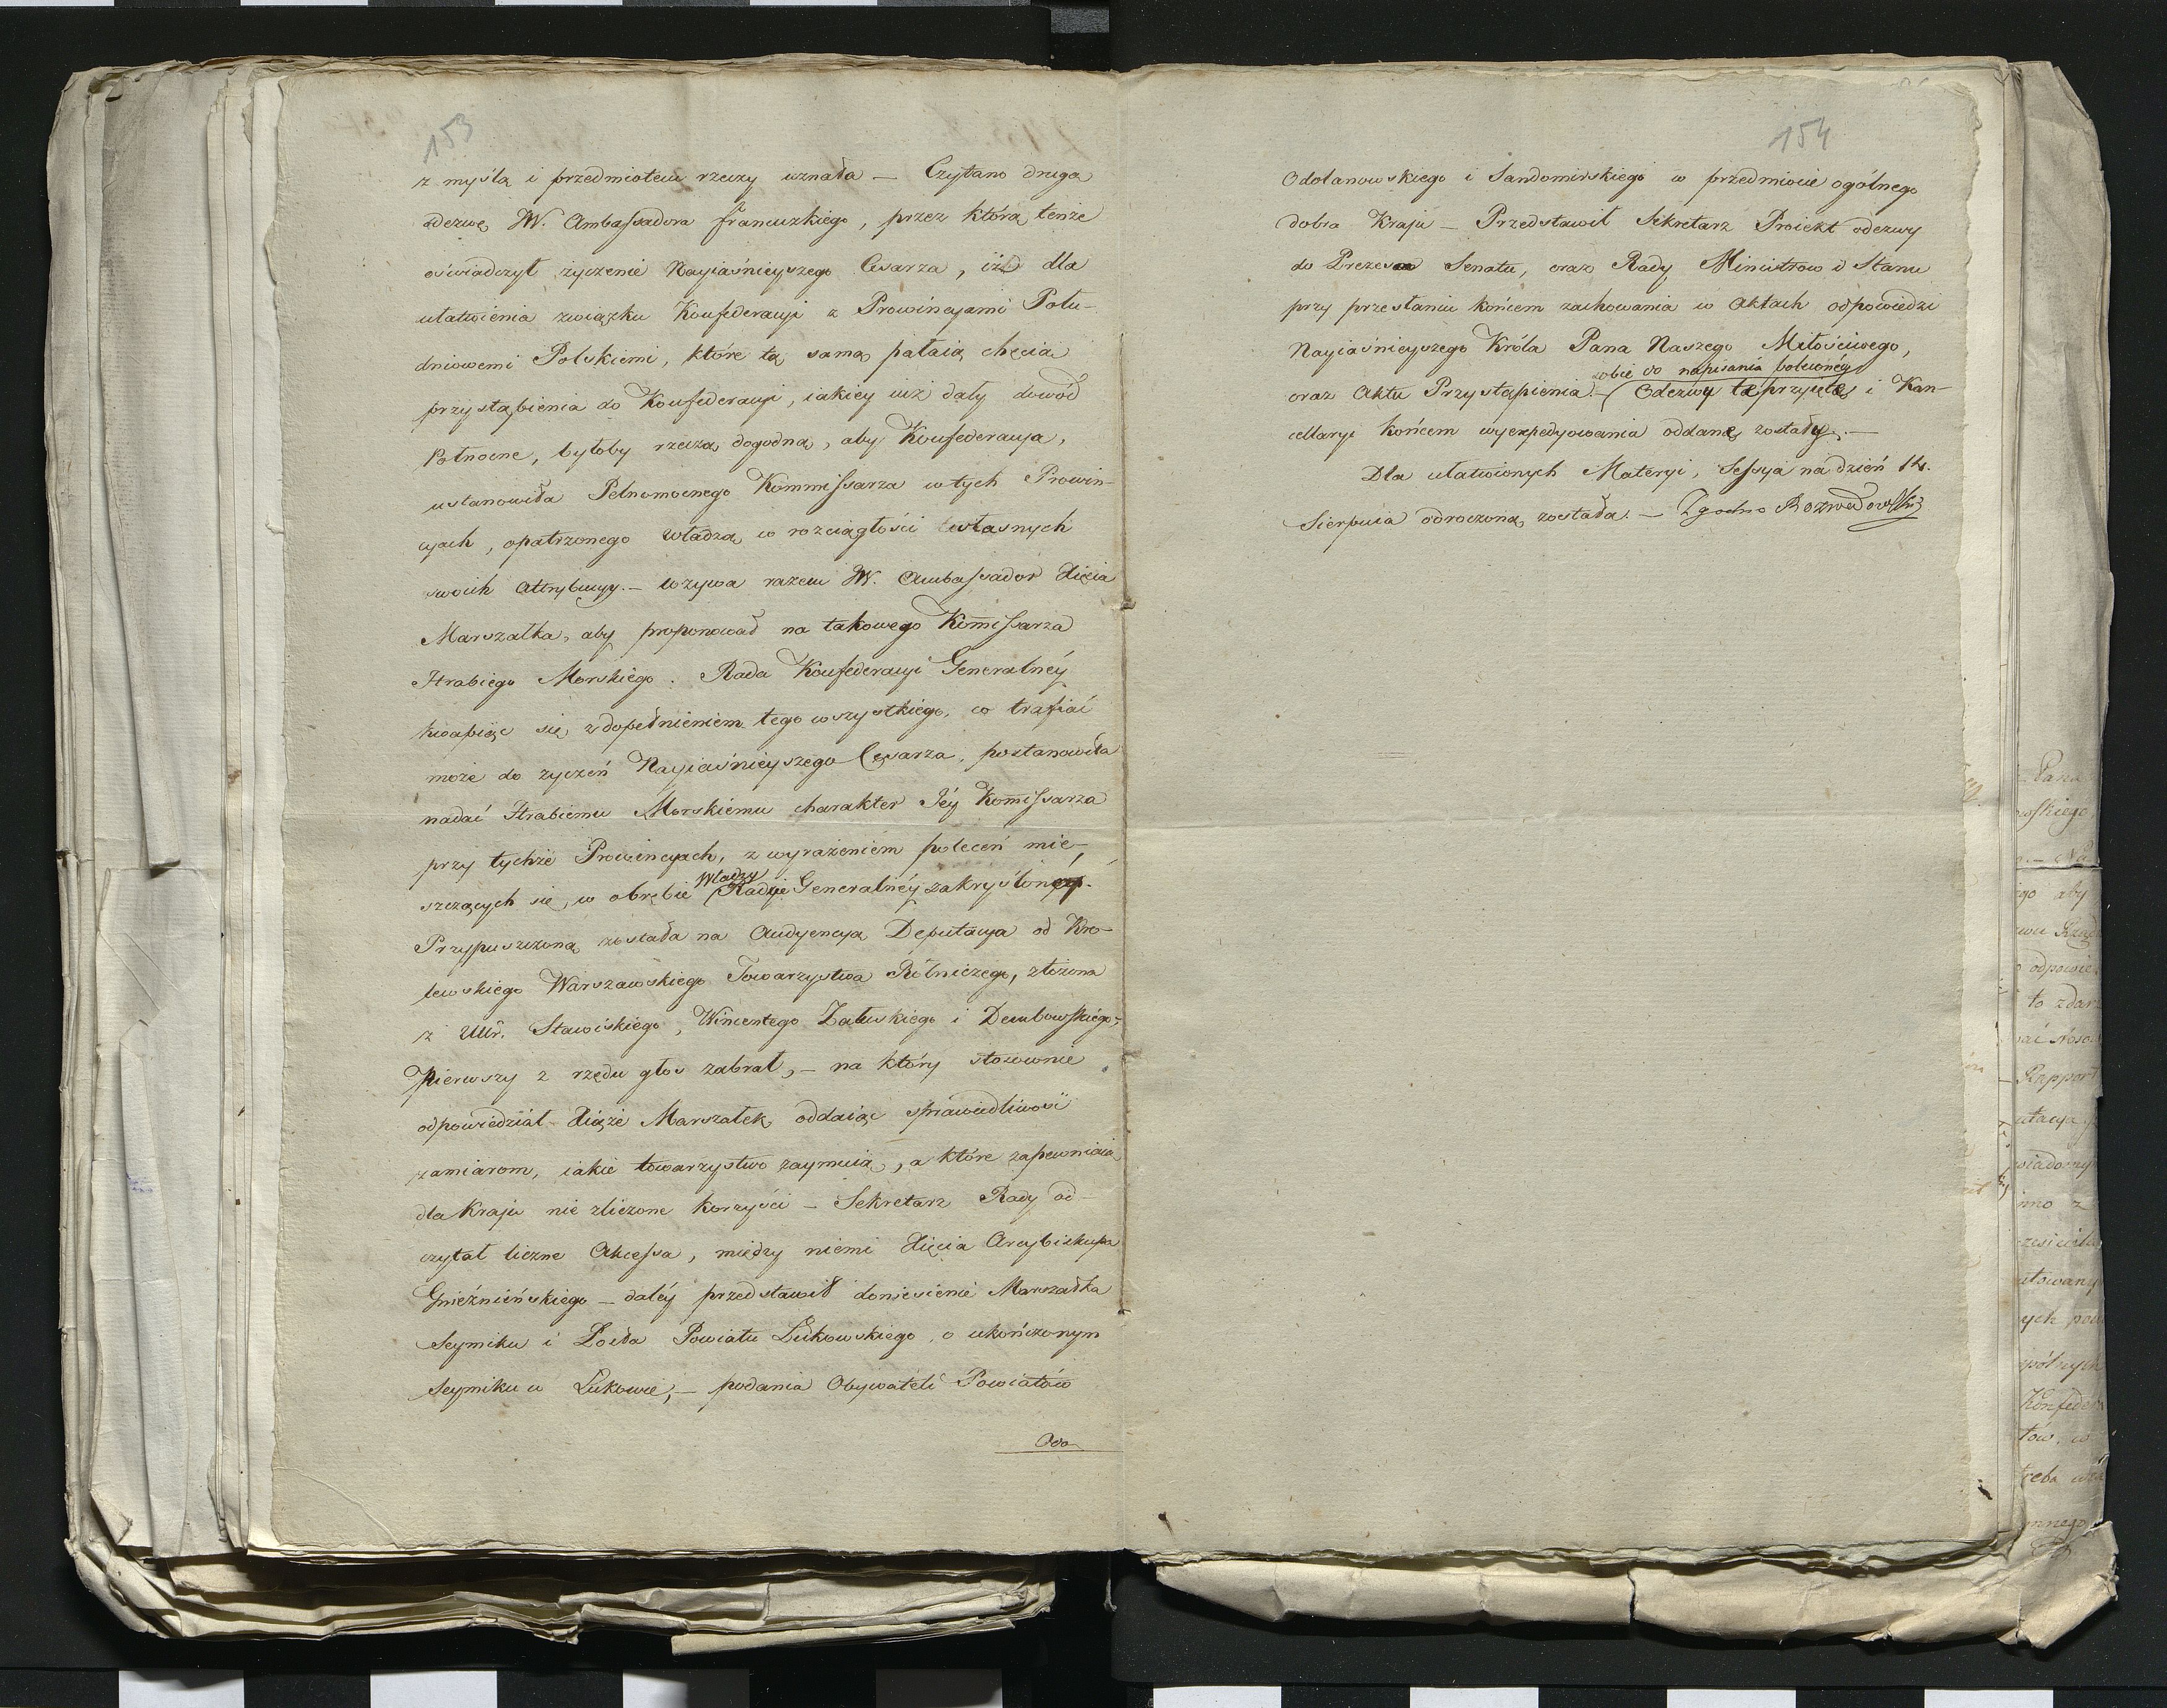 153
z myślą i przedmiotem rzeczy uznała — Czytano drugą
odezwę JW. Ambassadora francuzkiego, przez którą tenże
oświadczył życzenie Nayiaśnieyszego Cesarza, iż dla
ułatwienia związku Konfederacyi z Prowincyami Połu-
dniowemi Polskiemi, które tą samą pałaią chęcią
przystąpienia do Konfederacyi, iakiey iuż dały dowód
Północne, byłoby rzeczą dogodną, aby Konfederacya,
ustanowiła Pełnomocnego Kommissarza w tych Prowin-
cyach, opatrzonego władzą w rozciągłości własnych
swoich attrybucyy. — wzywa razem JW. Ambassador Xięcia
Marszałka, aby proponował na takowego Kom̄issarza
Hrabiego Morskiego. Rada Konfederacyi Generalnéy
kwapiąc się z dopełnieniem tego wszystkiego, co trafiać
może do życzeń Nayiaśnieyszego Cesarza, postanowiła
nadać Hrabiemu Morskiemu charakter Jéy Kom̄issarza
przy tychże Prowincyach, z wyrażeniem poleceń mie-
szczących się, w obrębie Władzy Radzie Generalnéy zakryślonéy.
Przypuszczoną została na Audyencyą Deputacya od Kró-
lewskiego Warszawskiego Towarzystwa Rólniczego, złożona
z Ur. Stawiskiego, Wincentego Załuskiego i Dembowskiego;
Pierwszy z rzędu głos zabrał, — na który stosownie
odpowiedział Xiąże Marszałek, oddaiąc sprawiedliwość
zamiarom, iakie towarzystwo zaymuią, a które zapewniaią
dla Kraju nie zliczone korzyści — Sekretarz Rady od-
czytał liczne Akcessa, między niemi Xięcia Arcybiskupa
Gnieźnieńskiego — daléy przedstawił doniesienie Marszałka
Seymiku i Posła Powiatu Łukowskiego, o ukończonym
Seymiku w Łukowie, — podania Obywateli Powiatów
Odo
154
Odolanowskiego i Sandomirskiego w przedmiocie ogólnego
dobra Kraju — Przedstawił Sekretarz Proiekt odezwy
do Prezesa Senatu, oraz Rady Ministrów i Stanu
przy przesłaniu końcem zachowania w Aktach odpowiedzi
Nayiaśnieyszego Króla Pana Naszego Miłościwego,
sobie do napisania poleconéy
oraz Aktu Przystąpienia. — Odezwy te przyięte i Kan-
cellaryi końcem wyexpedyowania oddane zostały. —
Dla ułatwionych Materyi, Sessya na dzień 14.
Sierpnia odroczoną została. — Zgodno Rozwadowski